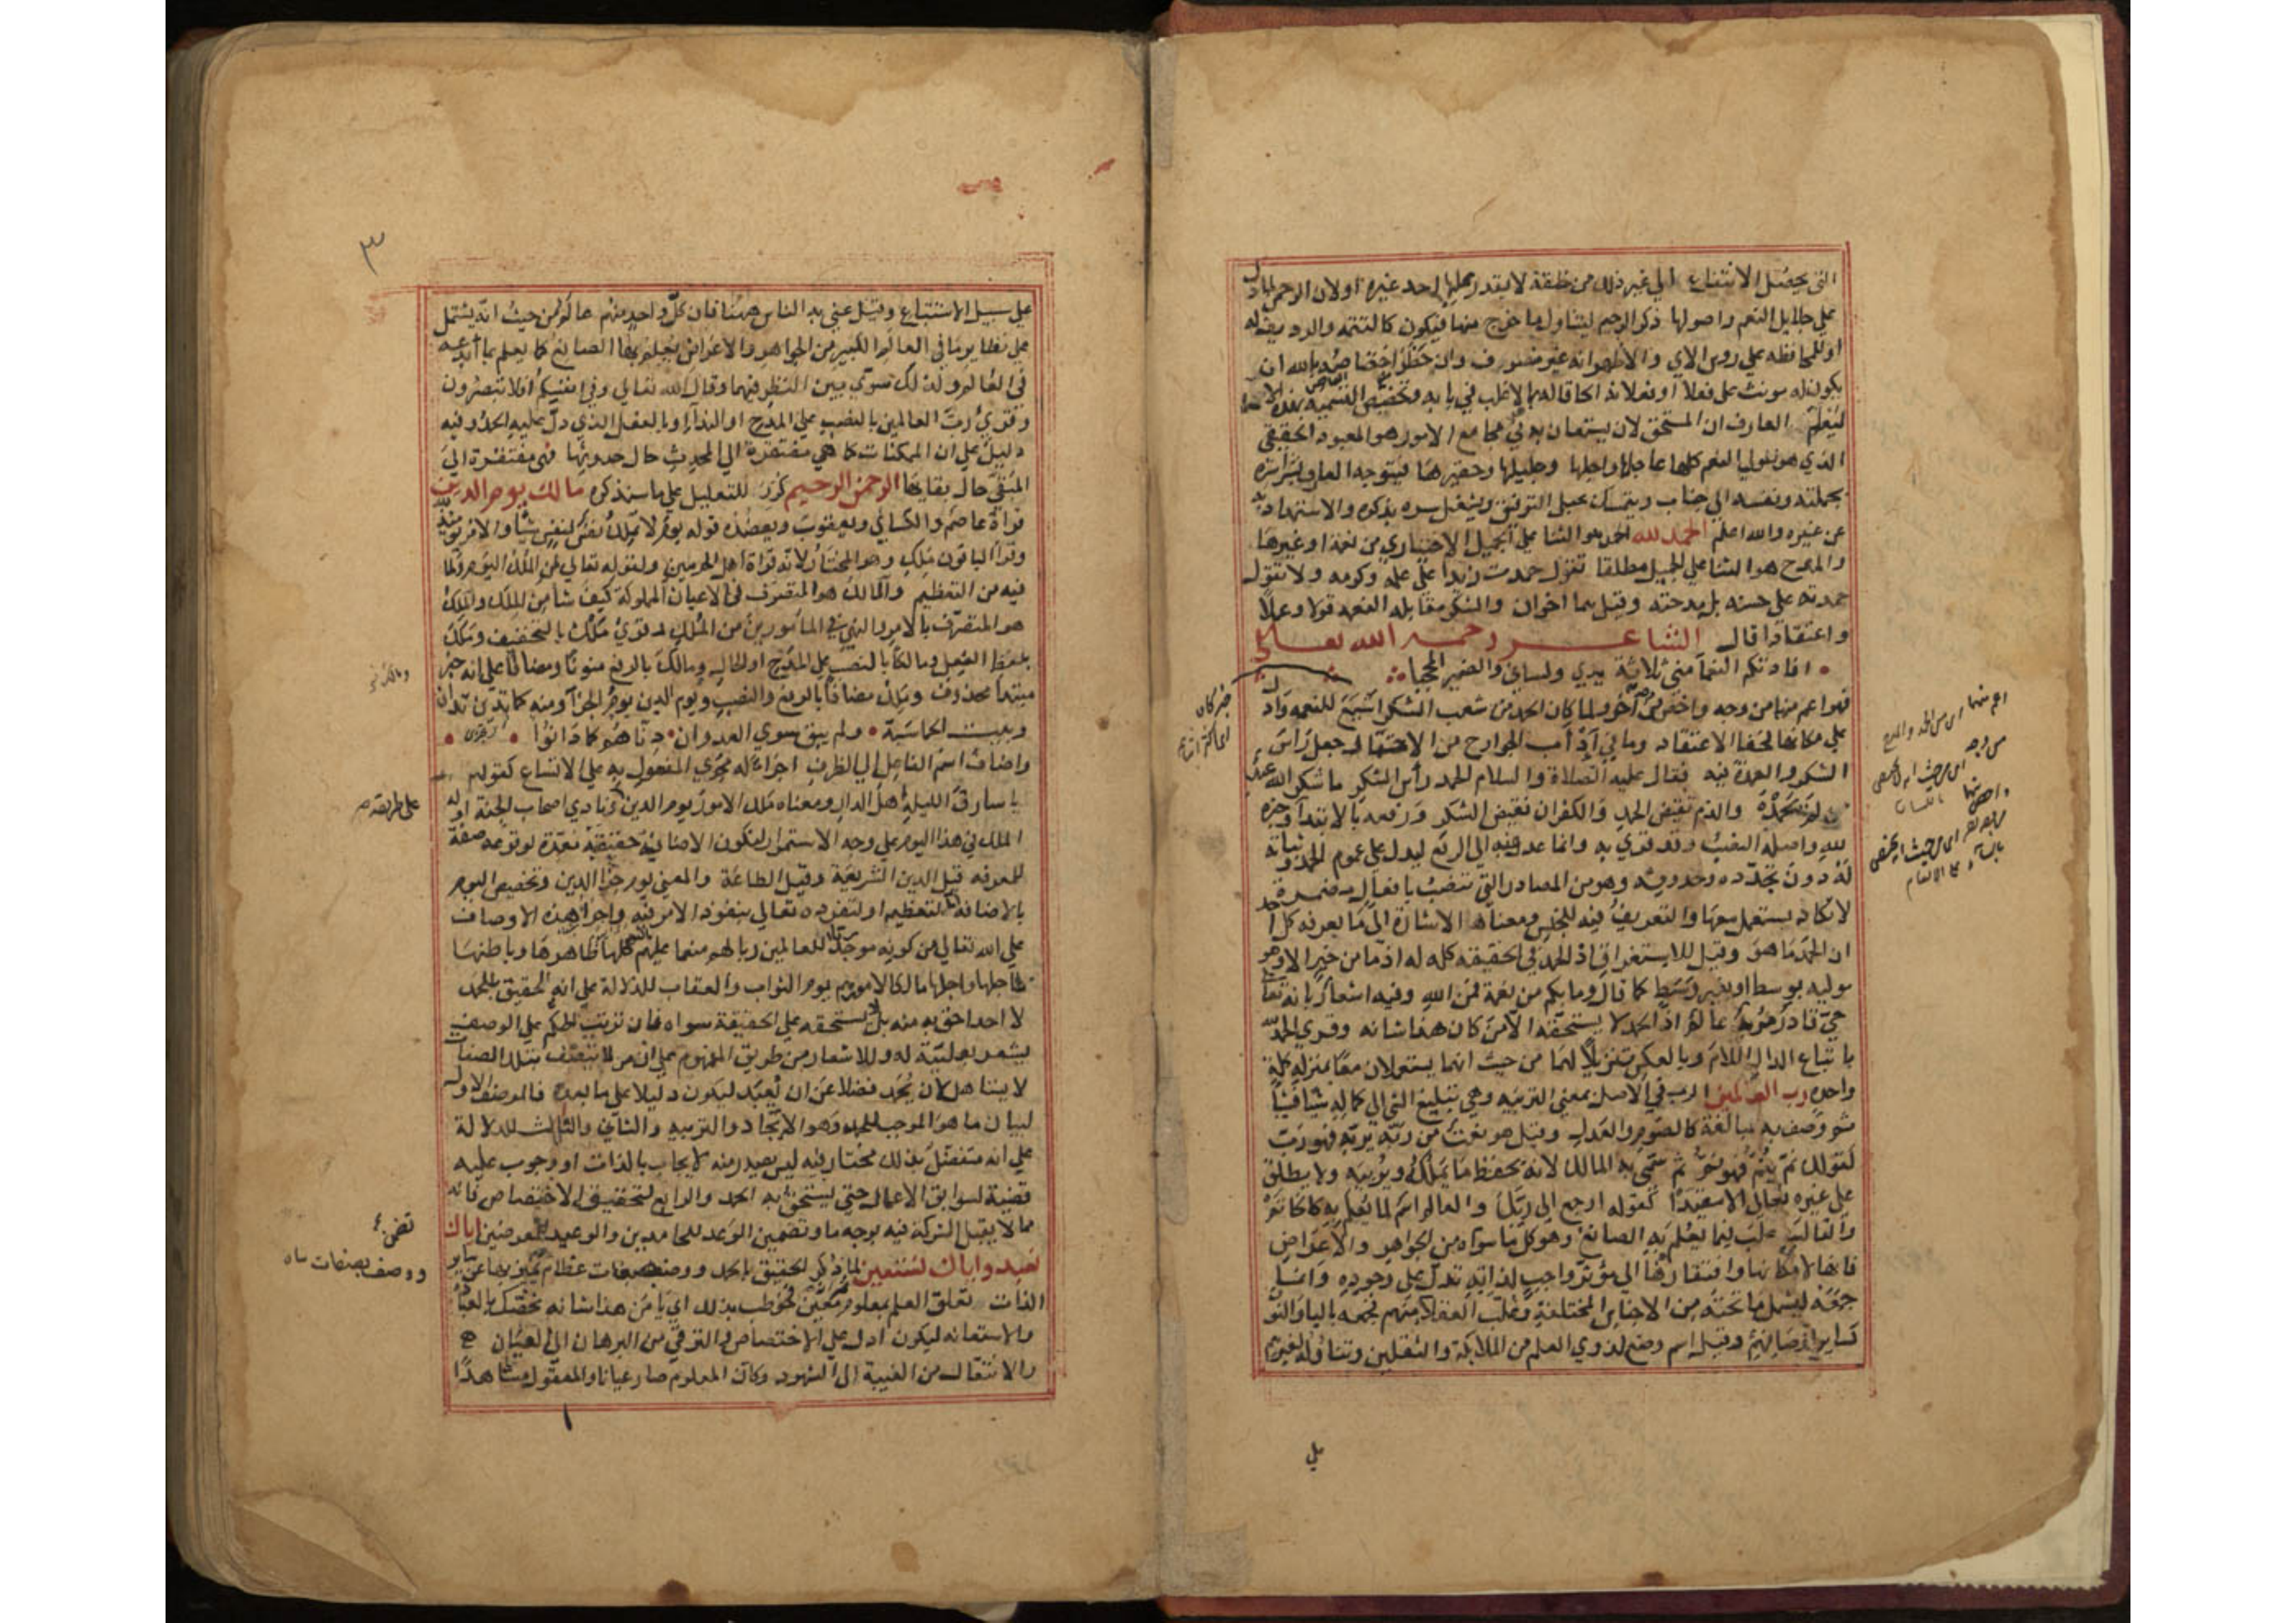 التي يحصل الانتفاع الى غير ذلك من خلقه لا يقدر عليها احد غيره او لان الرحمن لما دل
على جلايل النعم واصولها ذكر الرحيم ليتناول ما خرج منها فيكون كالتتمة والرديف له
او للمحافظة على روس الآي والاظهر انه غير منصرف وان حظر اختصاصه بالله ان
يكون له مونث على فعلى او فعلانة الحاقا له بما الاغلب في بابه وتخصيص التسمية بهذه الاسما
ليعلم العارف ان المستحق لان يستعان به في مجامع الامور هو المعبود الحقيقي
الذي هو مولي النعم كلها عاجلها واجلها وجليلها وحقيرها فيتوجه العارف بشراشره
بجملته ونفسه الى جناب ويتمسك بحبل التوفيق ويشغل سره بذكره والاستمداد به
عن غيره والله اعلم الحمد لله الحمد هو الثنا على الجميل الاختياري من نعمة او غيرها
والمدح هو الثنا على الجميل مطلقا تقول حمدت زيدا على علمه وكرمه ولا تقول
حمدته على حسنه بل مدحته وقيل هما اخوان والشكر مقابلة النعمة قولا وعملا
واعتقادا قال الشاعر رحمه الله تعالى
افادتكم النعما مني ثلاثة يدي ولساني والضمير المحجبا
فهو اعم منهما من وجه واخص من آخر ولما كان الحمد من شعب الشكر اشيع للنعمة وادل
على مكانها لخفا الاعتقاد وما في آداب الجوارح من الاحتمال جعل راس
الشكر والعمدة فيه فقال عليه الصلاة والسلام الحمد رأس الشكر ما شكر الله عبد
لم يحمده والذم نقيض الحمد والكفران نقيض الشكر ورفعه بالابتدا وخبره
لله واصله النصب وقد قرئ به وانما عدل عنه الى الرفع ليدل على عموم الحمد وثباته
له دون تجدده وحدوثه وهو من المصادر التي تنصب بافعال مضمرة
لا تكاد يستعمل معها والتعريف فيه للجنس ومعناه الاشارة الى ما يعرفه كل احد
ان الحمد ما هو وقيل للاستغراق اذ الحمد في الحقيقة كله له اذ ما من خير الا وهو
موليه بوسط او بغير وسط كما قال وما بكم من نعمة فمن الله وفيه اشعار بانه تعالى
حي قادر مريد عالم اذ الحمد لا يستحقه الا من كان هذا شانه وقرئ الحمد لله
باتباع الدال اللام وبالعكس تنزيلا لهما من حيث انهما يستعملان معا بمنزلة كلمة
واحده رب العالمين الرب في الاصل بمعنى التربية وهي تبليغ الشي الى كماله شيا فشيا
ثم وصف به مبالغة كالصوم والعدل وقيل هو نعت من ربه يربه فهو رب
كقولك نم ينم فهو نم ثم سمي به المالك لانه يحفظ ما يملكه ويربيه ولا يطلق
على غيره تعالى الا مقيدا كقوله ارجع الى ربك والعالم اسم لما يعلم به كالخاتم
والقالب غلب فيما يعلم به الصانع وهو كل ما سواه من الجواهر والاعراض
فانها لامكانها وافتقارها الى مؤثر واجب لذاته تدل على وجوده وانما
جمعه ليشمل ما تحته من الاجناس المختلفة وغلب العقلا منهم فجمعه باليا والنون
كساير اوصافهم وقيل اسم وضع لذوي العلم من الملائكة والثقلين وتناوله لغيرهم
اعم منهما اي من الحمد والمدح
من وجه
خبر كان
على
٣
على سبيل الاستتباع وقيل عني به الناس ههنا فان كل واحد منهم عالم من حيث انه يشتمل
على نظاير ما في العالم الكبير من الجواهر والاعراض يعلم بها الصانع كما يعلم بما أبدعه
في العالم ولذلك سوى بين النظر فيهما وقال الله تعالى وفي انفسكم افلا تبصرون
وقرئ رب العالمين بالنصب على المدح او الندا او بالفعل الذي دل عليه الحمد وفيه
دليل على ان الممكنات كما هي مفتقرة الى المحدث حال حدوثها فهي مفتقرة الى
المبقي حال بقايها الرحمن الرحيم كرره للتعليل على ما سنذكره مالك يوم الدين
قراة عاصم والكسائي ويعقوب ويعضده قوله يوم لا تملك نفس لنفس شيا والامر يومئذ لله
وقرأ الباقون ملك وهو المختار لانه قراة اهل الحرمين ولقوله تعالى لمن الملك اليوم ولما
فيه من التعظيم والمالك هو المتصرف في الاعيان المملوكة كيف شا من الملك والملك
هو المتصرف بالامر والنهي في المأمورين من الملك وقرئ ملك بالتخفيف وملك
بلفظ الفعل ومالكا بالنصب على المدح او الحال ومالك بالرفع منونا ومضافا على انه خبر
مبتدا محذوف وملك مضافا بالرفع والنصب ويوم الدين يوم الجزا ومنه كما تدين تدان
وبيت الحماسة ولم يبق سوى العدوان دناهم كما دانوا
واضاف اسم الفاعل الى الظرف اجراء له مجرى المفعول به على الاتساع كقولهم
يا سارق الليلة اهل الدار ومعناه ملك الامور يوم الدين ونادى اصحاب الجنة او له
الملك في هذا اليوم على وجه الاستمرار لتكون الاضافة حقيقية معدة لوقوعه صفة
للمعرفه قيل الدين الشريعة وقيل الطاعة والمعنى يوم جزا الدين وتخصيص اليوم
بالاضافة لتعظيمه او لتفرده تعالى بنفوذ الامر فيه واجرا هذه الاوصاف
على الله تعالى من كونه موجدا للعالمين ربا لهم منعما عليهم بالنعم كلها ظاهرها وباطنها
عاجلها واجلها مالكا لامورهم يوم الثواب والعقاب للدلالة على انه الحقيق بالحمد
لا احد احق به منه بل لا يستحقه على الحقيقة سواه فان ترتيب الحكم على الوصف
يشعر بعليته له وللاشعار من طريق المفهوم على ان من لا يتصف بتلك الصفات
لا يستاهل لان يحمد فضلا عن ان يعبد ليكون دليلا على ما بعده فالوصف الاول
لبيان ما هو الموجب للحمد وهو الايجاد والتربية والثاني والثالث للدلالة
على انه متفضل بذلك مختار فيه ليس يصدر منه لايجاب بالذات او وجوب عليه
قضية لسوابق الاعمال حتى يستحق به الحمد والرابع لتحقيق الاختصاص فانه
مما لا يقبل الشركة فيه بوجه ما وتضمين الوعد للحامدين والوعيد للمعرضين اياك
نعبد واياك نستعين لما ذكر الحقيق بالحمد ووصف بصفات عظام تميز بها عن ساير
الذات تعلق العلم بمعلوم معين خوطب بذلك اي يا من هذا شانه نخصك بالعبادة
والاستعانه ليكون ادل على الاختصاص والترقي من البرهان الى العيان
والانتقال من الغيبة الى الشهود وكأن المعلوم صار عيانا والمعقول مشاهدا
على طريقهم
ووصف بصفات